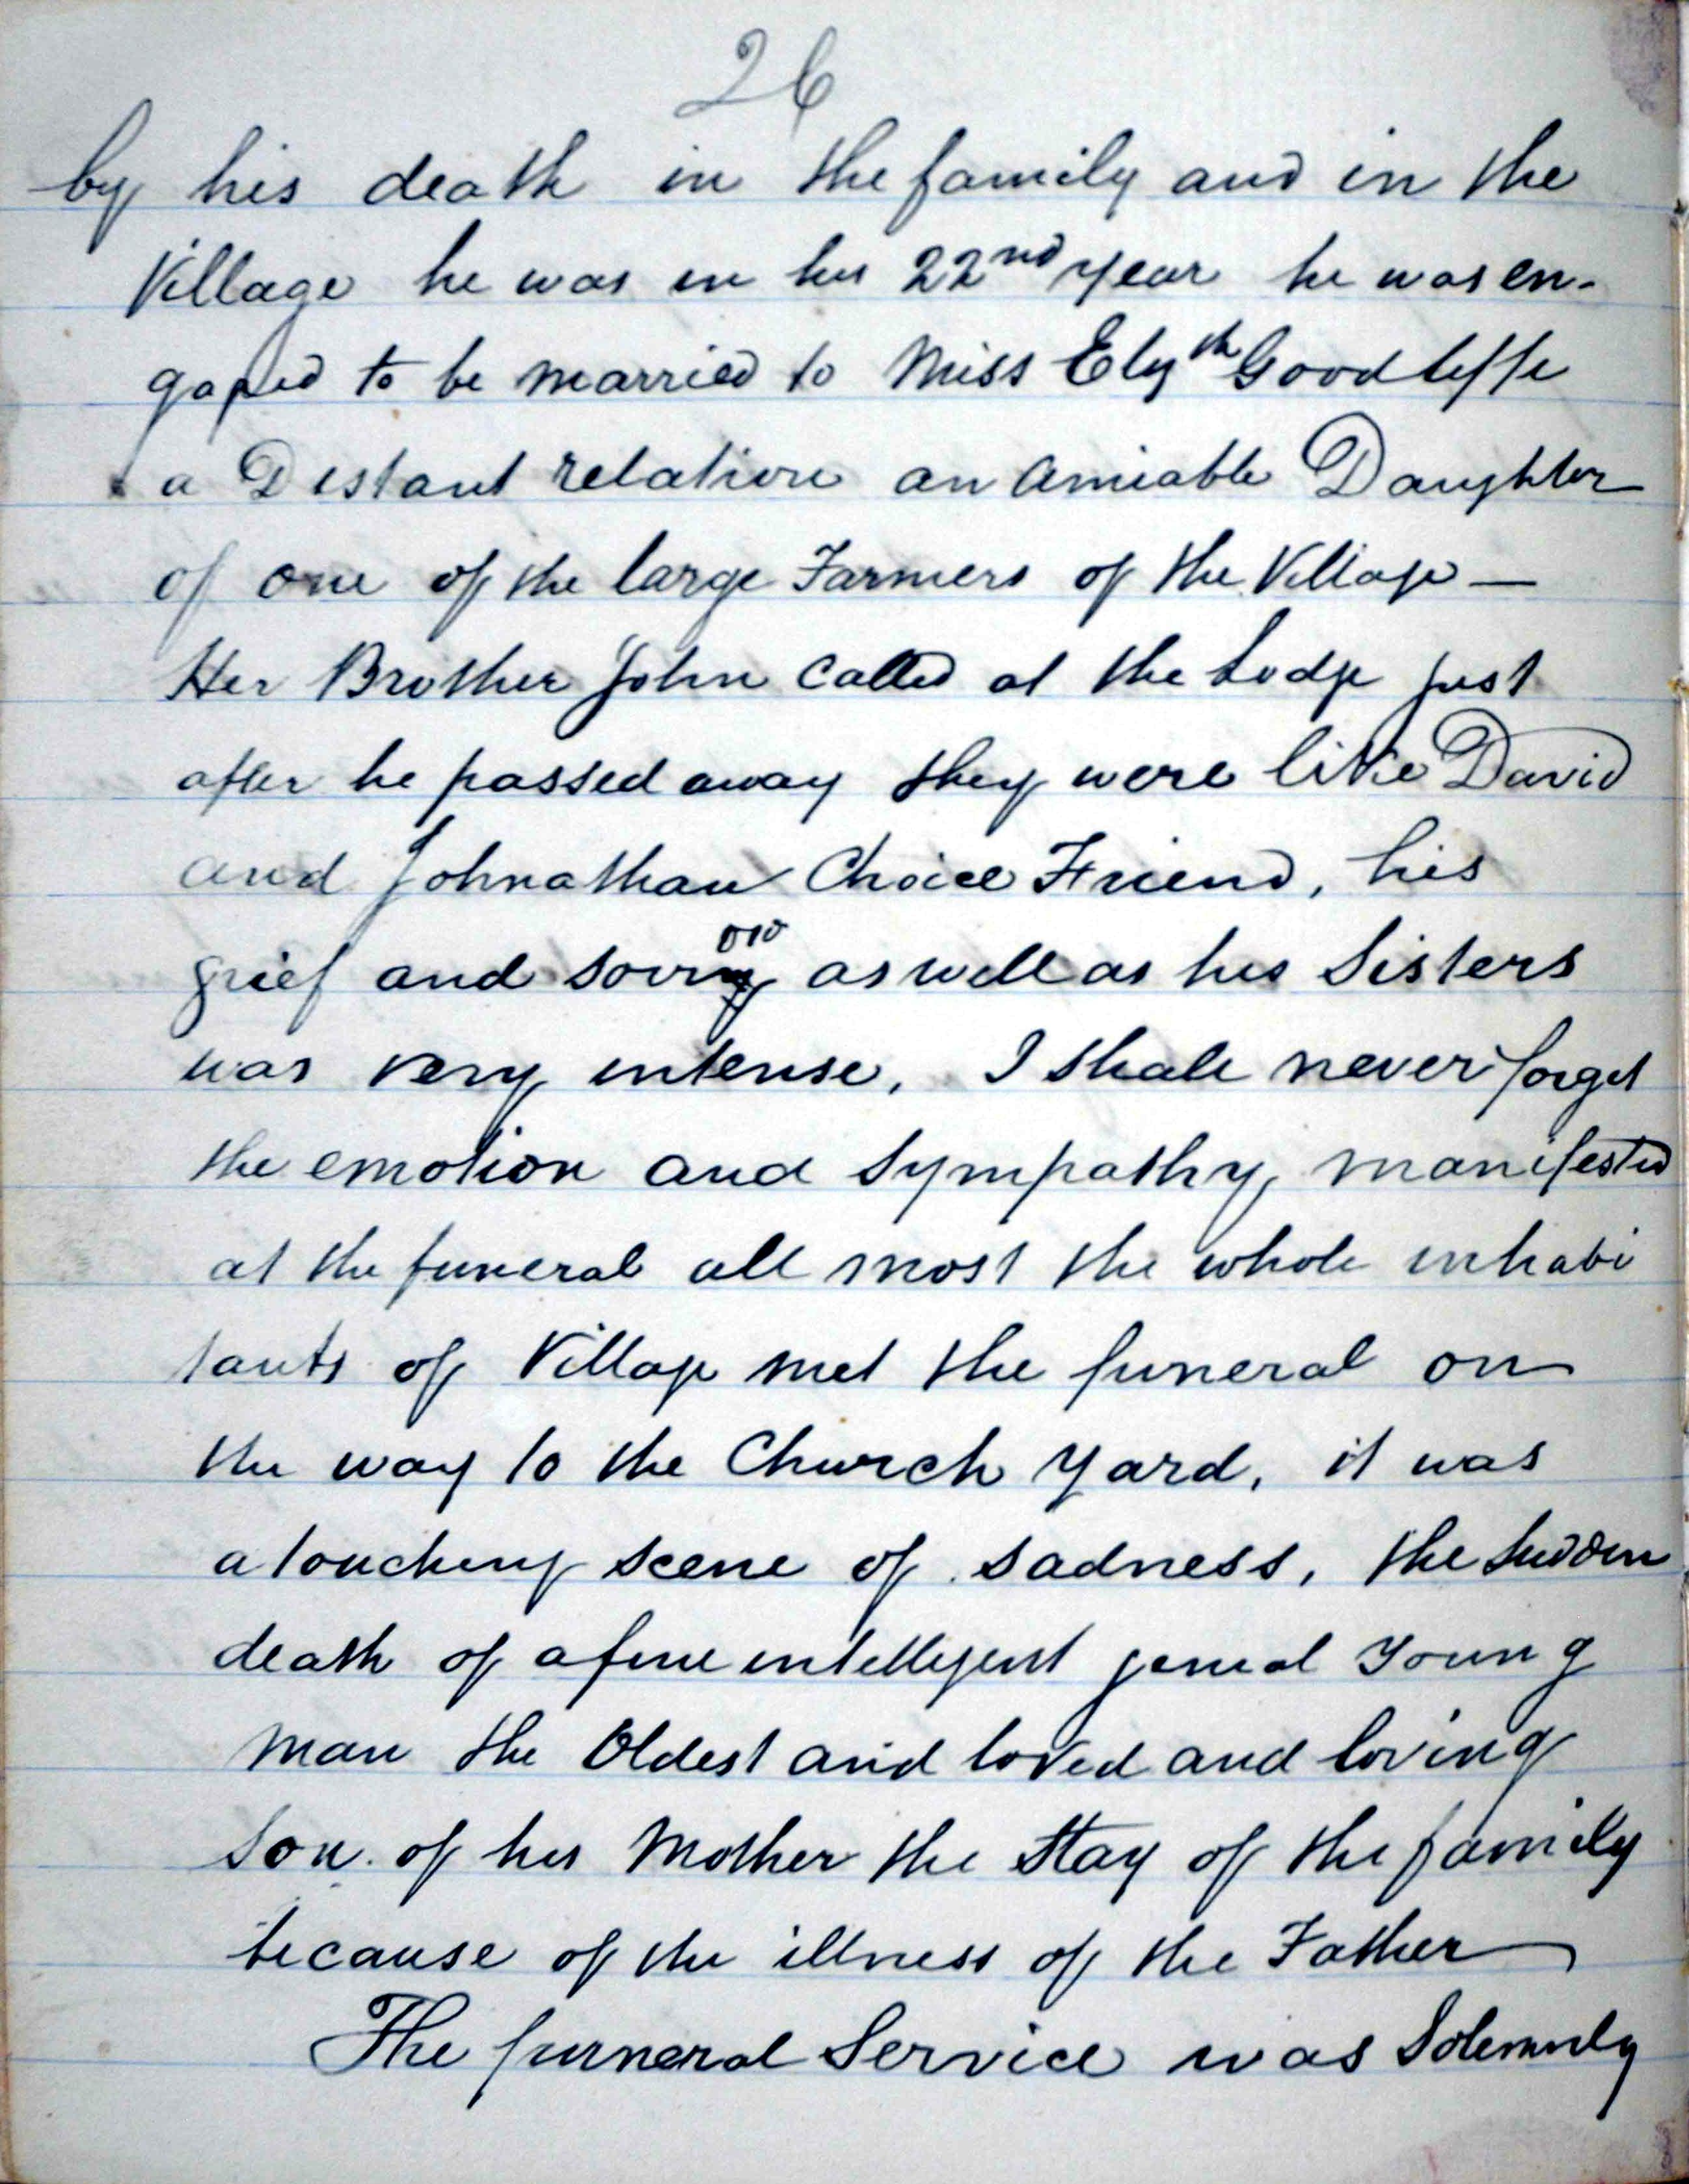 26
by his death in the family and in the
Village he was in his 22nd year he was en-
gaged to be married to Miss Elyth Goodliffe
a Distant relation an amiable Daughter
of one of the large Farmers of the Village —
Her Brother John called at the Lodge just
after he passed away they were like David
and Johnathan Choice Friend, his
grief and sorrow as well as his Sisters
was very intense, I shall never forget
the emotion and sympathy manifested
at the funeral all most the whole inhabi
tants of Village met the funeral on
the way to the Church Yard, it was
a touching scene of sadness, the sudden
death of a fine intelligent genial Young
man the Oldest and loved and loving
Son of his Mother the Stay of the family
because of the illness of the Father
The furneral Service was Solemnly